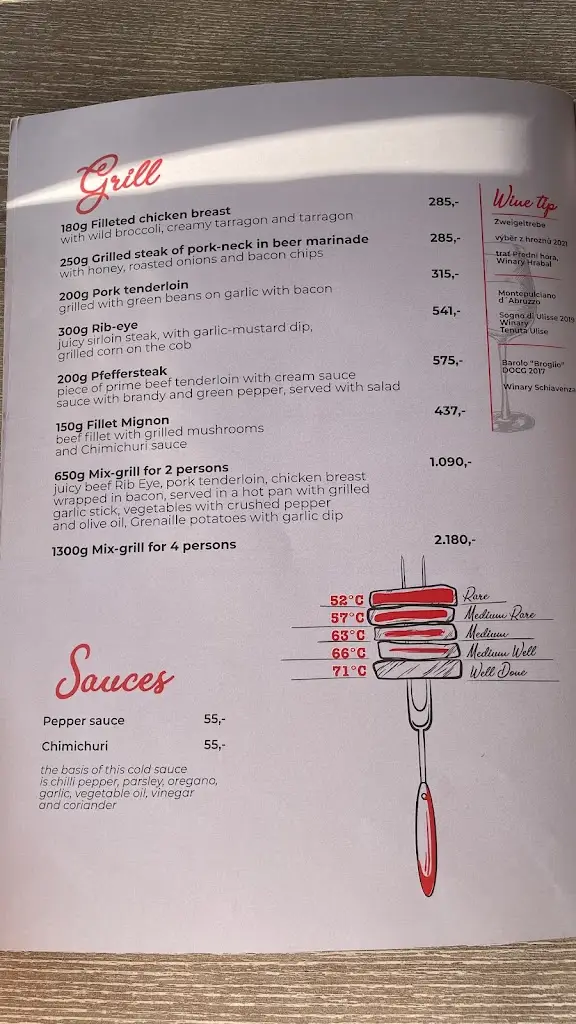 Grill
180g Filleted chicken breast 285,-
with wild broccoli, creamy tarragon and tarragon
250g Grilled steak of pork-neck in beer marinade 285,-
with honey, roasted onions and bacon chips
200g Pork tenderloin 315,-
grilled with green beans on garlic with bacon
300g Rib-eye 541,-
juicy sirloin steak, with garlic-mustard dip,
grilled corn on the cob
200g Pfeffersteak 575,-
piece of prime beef tenderloin with cream sauce
sauce with brandy and green pepper, served with salad
150g Fillet Mignon 437,-
beef fillet with grilled mushrooms
and Chimichuri sauce
650g Mix-grill for 2 persons 1.090,-
juicy beef Rib Eye, pork tenderloin, chicken breast
wrapped in bacon, served in a hot pan with grilled
garlic stick, vegetables with crushed pepper
and olive oil, Grenaille potatoes with garlic dip
1300g Mix-grill for 4 persons 2.180,-
Wine tip
Zweigeltrebe
výběr z hroznů 2021
trať Přední hora,
Winery Hrabal
Montepulciano
d'Abruzzo
Sogno di Ulisse 2019
Winery
Tenuta Ulise
Barolo "Broglio"
DOCG 2017
Winery Schiavenza
52°C Rare
57°C Medium Rare
63°C Medium
66°C Medium Well
71°C Well Done
Sauces
Pepper sauce 55,-
Chimichuri 55,-
the basis of this cold sauce
is chilli pepper, parsley, oregano,
garlic, vegetable oil, vinegar
and coriander